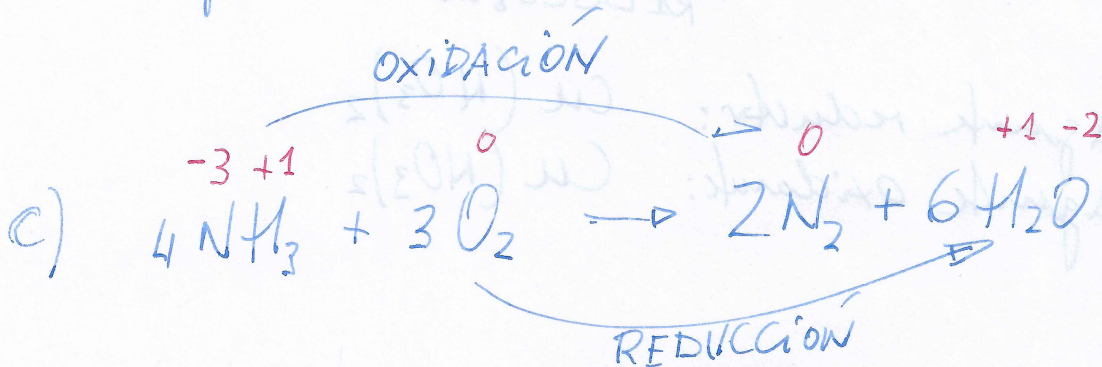 OXIDACIÓN
-3 +1 0 0 +1 -2
c) 4NH₃ + 3O₂ → 2N₂ + 6H₂O
REDUCCIÓN